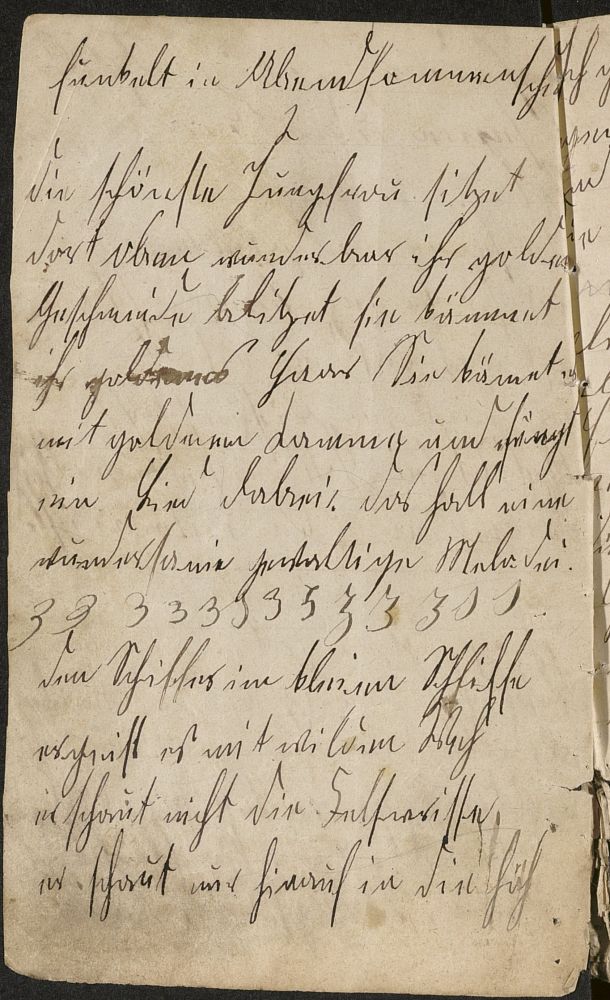 funkelt in Abendsonnenschein
2
die schönste Jungfrau sitzet
dort oben wunderbar ihr golden
Geschmeide blitzet sie kämmet
ihr goldenes Haar Sie kämet
mit goldenen Kamme und singt
ein Lied dabei. das hatt eine
wundersame gewaltige Melodei.
3 3 3 3 3 3 3 5 3 3 3 0 0
den Schiffer im kleinen Schiffe
ergreift es mit wilden Weh
er schaut nicht die Felsenriffe
er schaut nur hinauf in die Höh